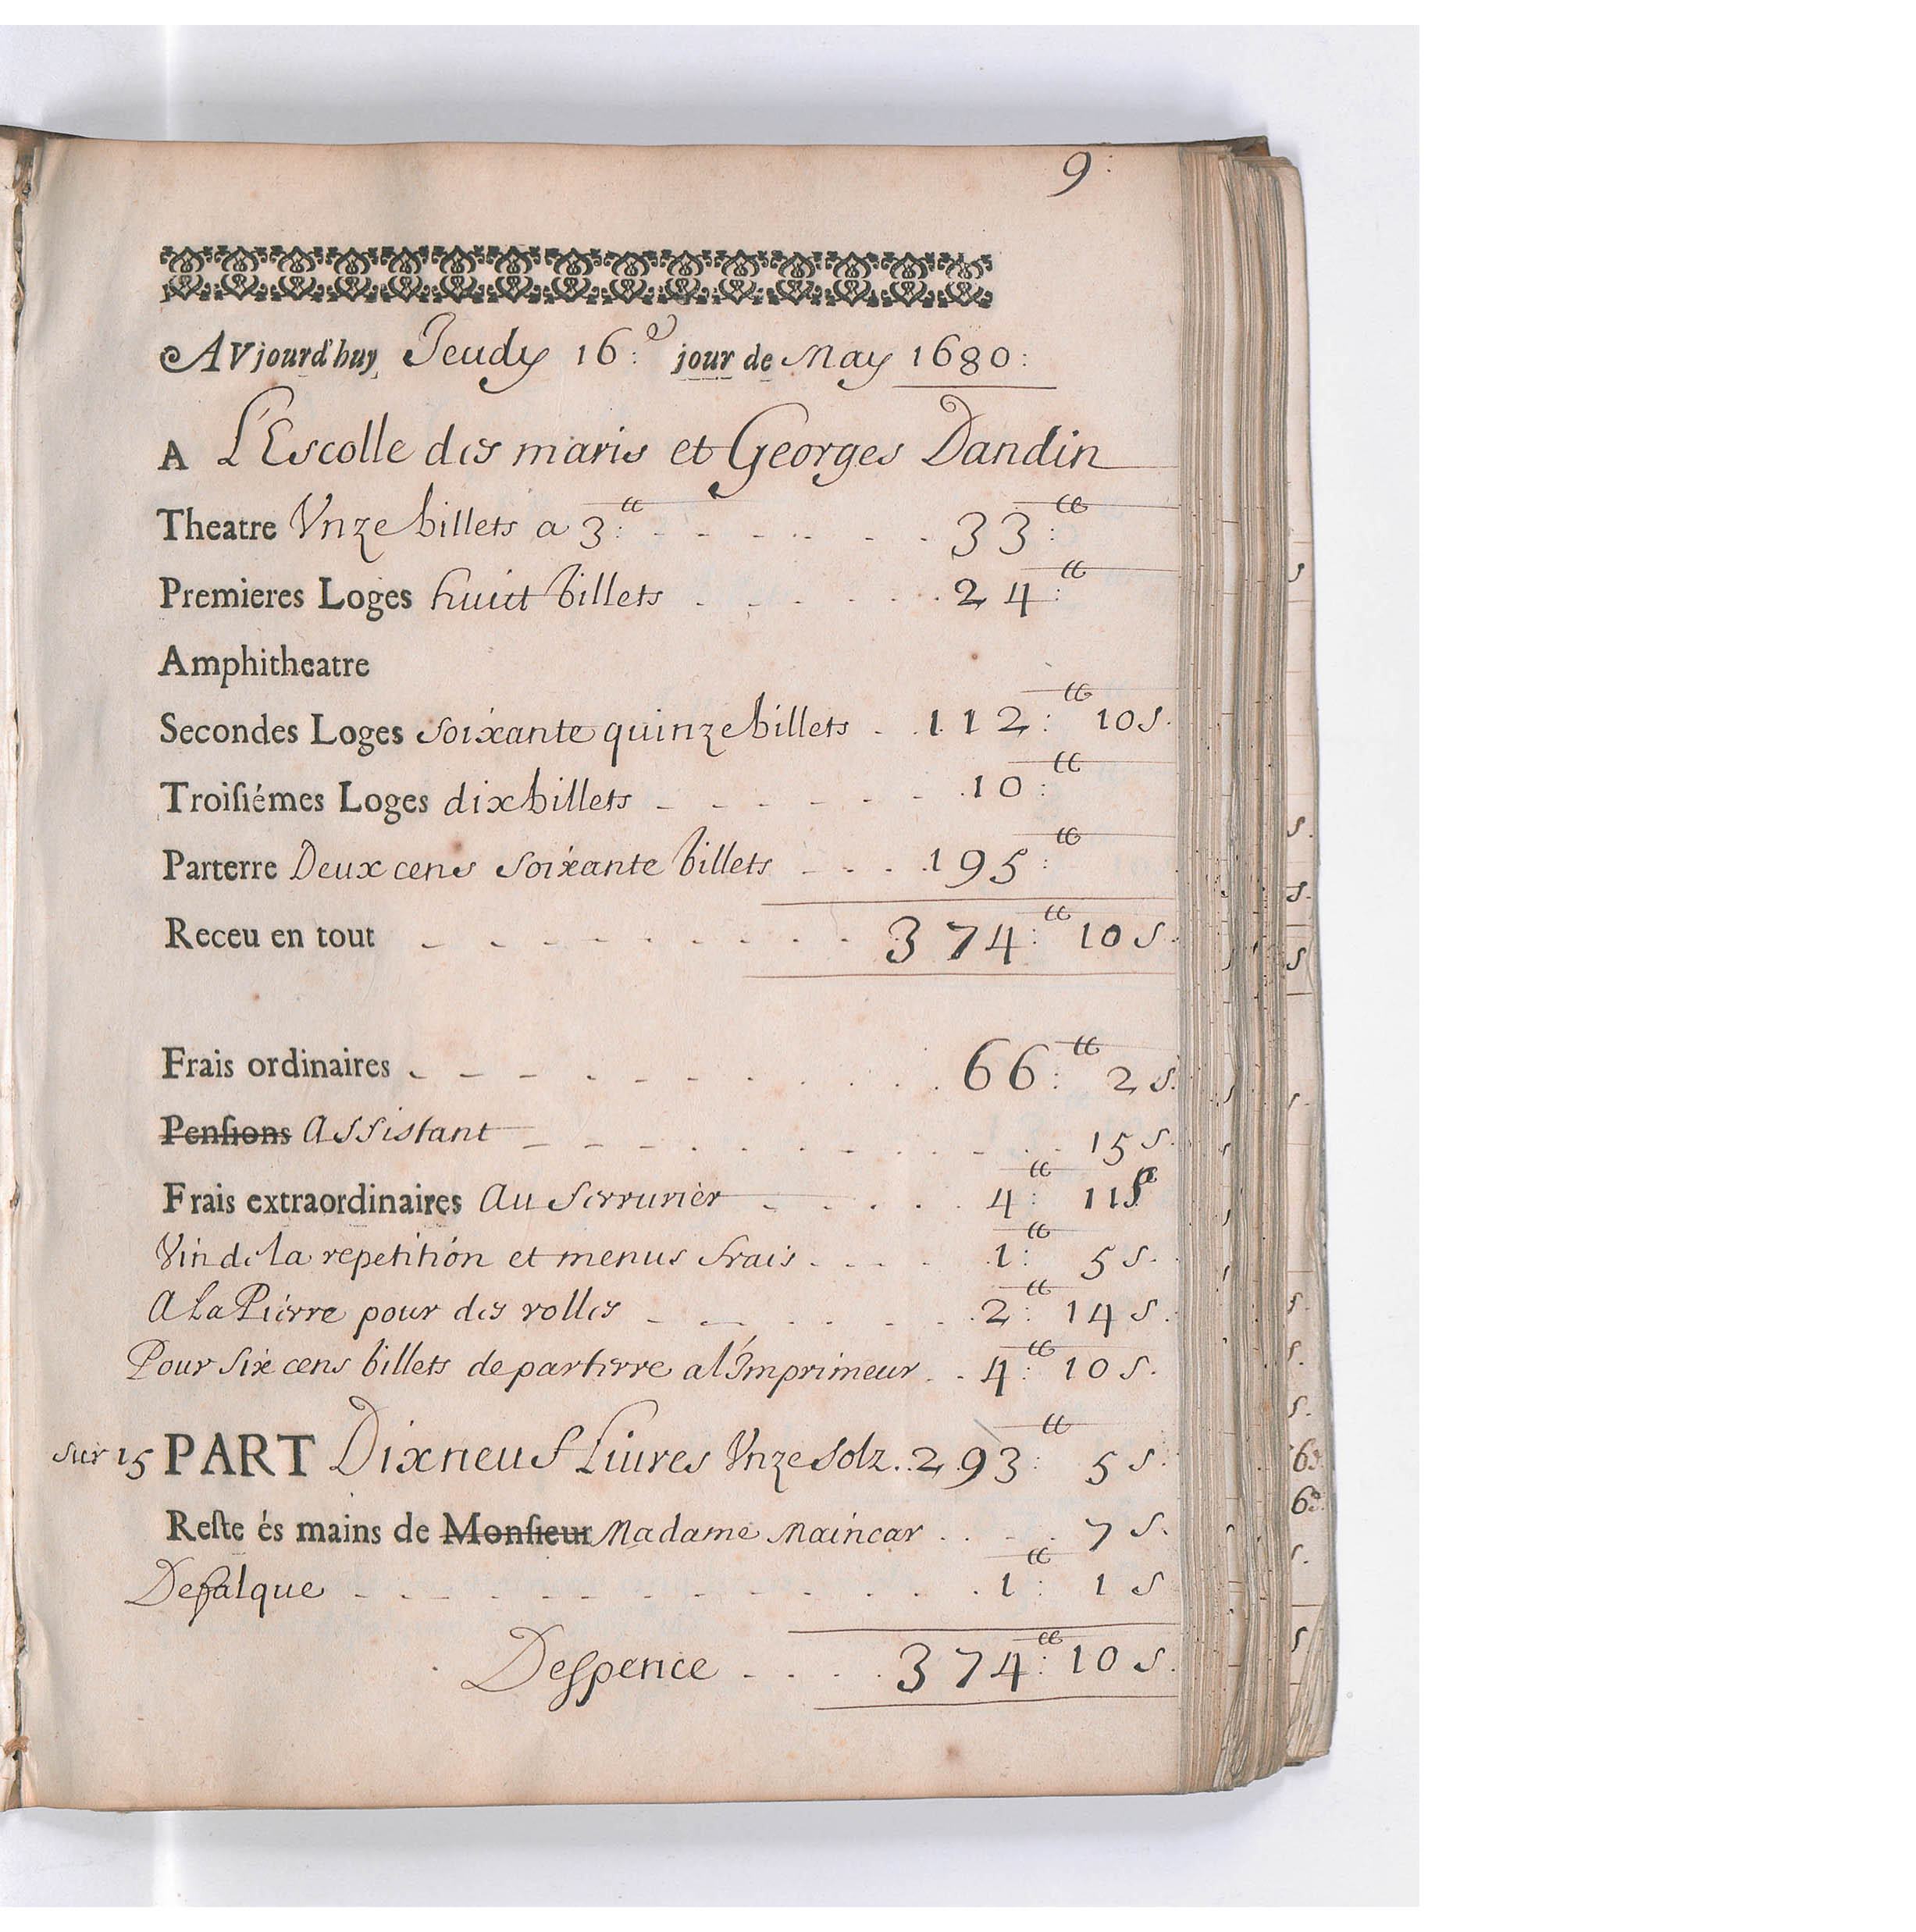 9:
AVjourd'huy Jeudy 16:e jour de May 1680:
A L'Escolle des maris et Georges Dandin
Theatre Vnze billets a 3:tt - - - - - - 33:tt
Premieres Loges huict billets . . . . . . 24:tt
Amphitheatre
Secondes Loges soixante quinze billets . . 112:tt 10 s.
Troisiémes Loges dix billets - - - - - - 10:tt
Parterre Deux cens soixante billets - . . . 195:tt
Receu en tout - - - - - - - - - 374:tt 10 s.
Frais ordinaires - - - - - - - - - 66:tt 2 s.
Pensions Assistant - - - - - - - - - 15 s.
Frais extraordinaires Au Serrurier - . . . . 4:tt 11 s
Vin de la repetition et menus frais . . . . 1:tt 5 s.
A La Pierre pour des rolles - - . . . . 2:tt 14 s.
Pour six cens billets de parterre a l'Imprimeur . . 4:tt 10 s.
sur 15 PART Dixneuf Liures Vnze solz . 293:tt 5 s.
Reste és mains de Monsieur Madame Maincar . . . . 7 s.
Defalque - - - - - - - - - - 1:tt 1 s
Despence - . . . 374:tt 10 s.